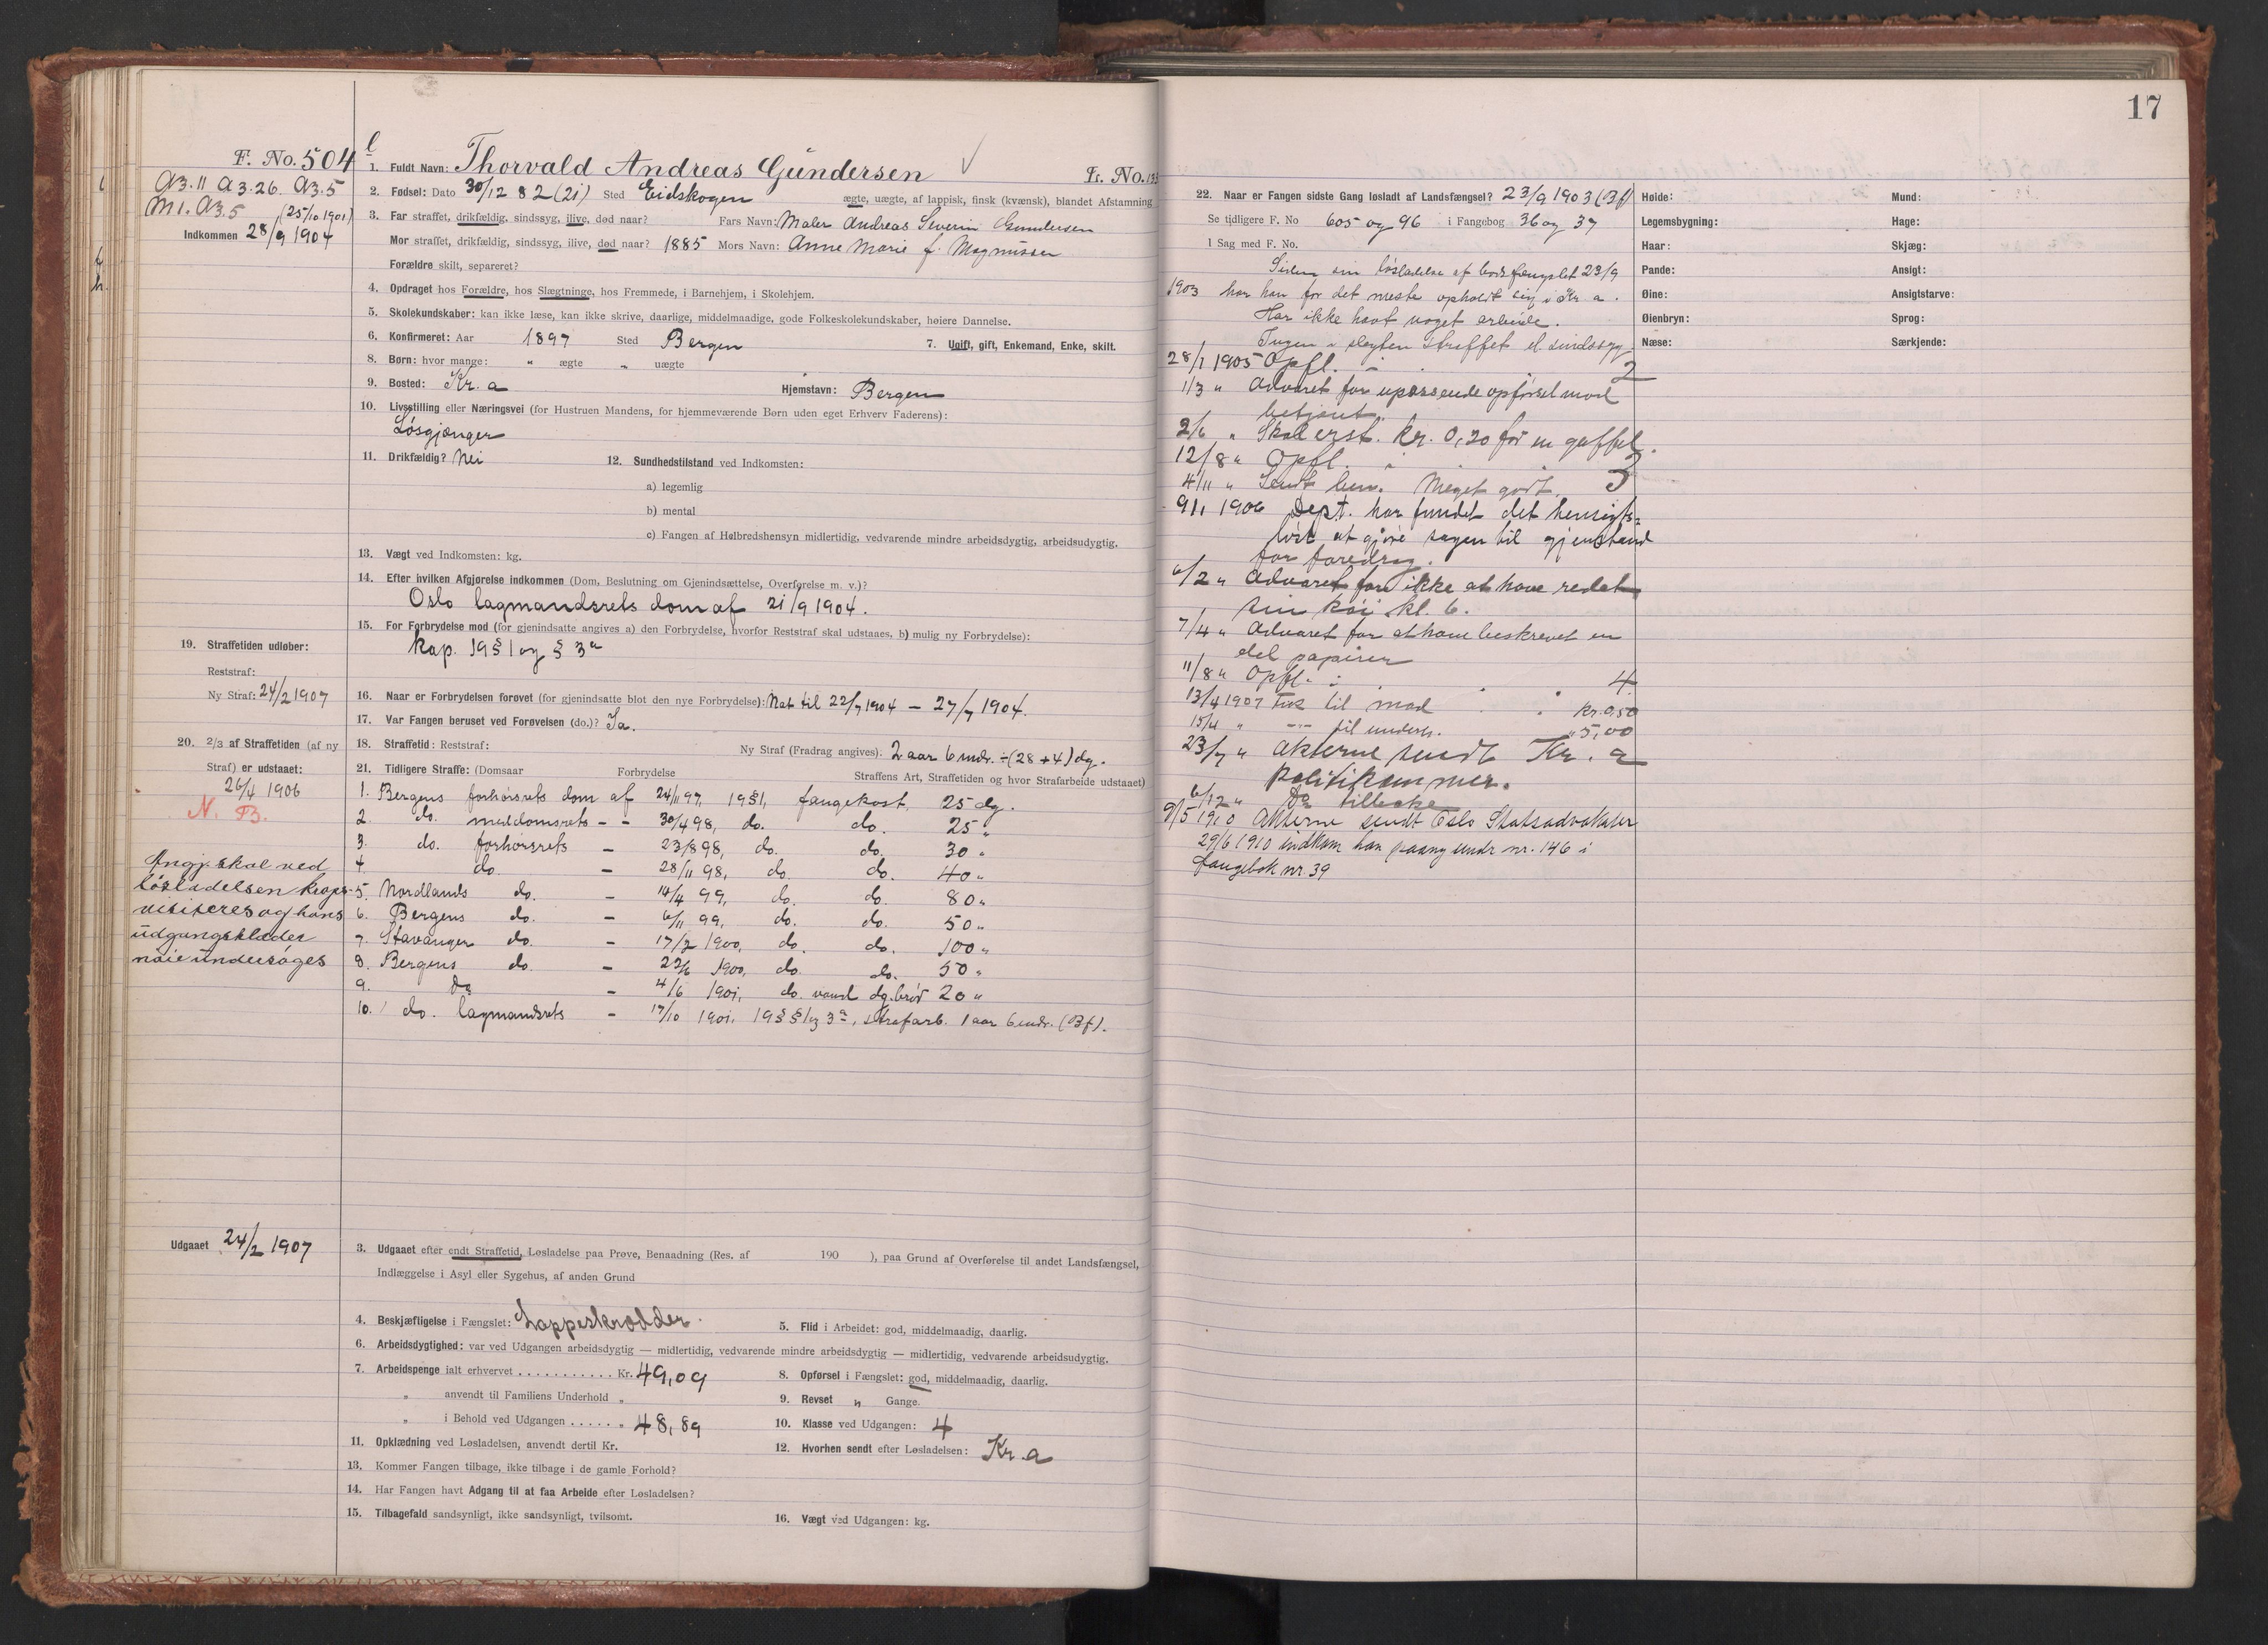 17
F. No. 504
l
1. Fuldt Navn: Thorvald Andreas Gundersen
Fr. No.
A3.11 A3.26. A3.5
M1. A3.5 (25/10 1901)
Indkommen 28/9 1904
2. Fødsel: Dato 30/12 82 (21) Sted Eidskogen
ægte, uægte, af lappisk, finsk (kvænsk), blandet Afstamning
3. Far straffet, drikfældig, sindssyg, ilive, død naar? Fars Navn: Maler Andreas Severin Gundersen
Mor straffet, drikfældig, sindssyg, ilive, død naar? 1885 Mors Navn: Anne Marie f. Magnussen
Forældre skilt, separeret?
4. Opdraget hos Forældre, hos Slægtninge, hos Fremmede, i Barnehjem, i Skolehjem.
5. Skolekundskaber: kan ikke læse, kan ikke skrive, daarlige, middelmaadige, gode Folkeskolekundskaber, høiere Dannelse.
6. Konfirmeret: Aar 1897 Sted Bergen 7. Ugift, gift, Enkemand, Enke, skilt.
8. Børn: hvor mange: " ægte " uægte
9. Bosted: Kr.a Hjemstavn: Bergen
10. Livsstilling eller Næringsvei (for Hustruen Mandens, for hjemmeværende Børn uden eget Erhverv Faderens):
Løsgjænger
11. Drikfældig? Nei 12. Sundhedstilstand ved Indkomsten:
a) legemlig
b) mental
c) Fangen af Helbredshensyn midlertidig, vedvarende mindre arbeidsdygtig, arbeidsudygtig.
13. Vægt ved Indkomsten: kg.
14. Efter hvilken Afgjørelse indkommen (Dom, Beslutning om Gjenindsættelse, Overførelse m. v.)?
Oslo lagmandsrets dom af 21/9 1904.
15. For Forbrydelse mod (for gjenindsatte angives a) den Forbrydelse, hvorfor Reststraf skal udstaaes, b) mulig ny Forbrydelse):
Kap. 19 § 1 og § 3a
19. Straffetiden udløber:
Reststraf:
Ny Straf: 24/2 1907
16. Naar er Forbrydelsen forøvet (for gjenindsatte blot den nye Forbrydelse): Nat til 22/7 1904 — 27/7 1904.
17. Var Fangen beruset ved Forøvelsen (do.)? Ja.
20. 2/3 af Straffetiden (af ny
Straf) er udstaaet:
26/4 1906
N. B.
18. Straffetid: Reststraf: Ny Straf (Fradrag angives): 2 aar 6 mdr. ÷ (28 + 4) dg.
21. Tidligere Straffe: (Domsaar Forbrydelse Straffens Art, Straffetiden og hvor Strafarbeide udstaaet)
1. Bergens forhørsrets dom af 24/11 97, 19 § 1, fangekost. 25 dg.
2. do. meddomsrets - - 30/4 98, do. do. 25 "
3. do. forhørsrets - 23/8 98, do. do. 30 "
4. do. - 28/11 98, do. do. 40 "
5. Nordlands do. - 14/4 99, do. do. 80 "
6. Bergens do. - 6/11 99, do. do. 50 "
7. Stavanger do. - 17/2 1900, do. do. 100 "
8. Bergens do. - 22/6 1900, do. do. 50 "
9. Do - 4/6 1901, do. vand og brød 20 "
10. do. lagmandsrets - 17/10 1901, 19 §§ 1 og 3a, strafarb. 1 aar 6 mdr. (Bf).
Angj. skal ved
løsladelsen krops-
visiteres og hans
udgangsklæder
nøie undersøges
Udgaaet 24/2 1907
3. Udgaaet efter endt Straffetid, Løsladelse paa Prøve, Benaadning (Res. af 190 ), paa Grund af Overførelse til andet Landsfængsel,
Indlæggelse i Asyl eller Sygehus, af anden Grund
4. Beskjæftigelse i Fængslet: Lappeskrædder. 5. Flid i Arbeidet: god, middelmaadig, daarlig.
6. Arbeidsdygtighed: var ved Udgangen arbeidsdygtig — midlertidig, vedvarende mindre arbeidsdygtig — midlertidig, vedvarende arbeidsudygtig.
7. Arbeidspenge ialt erhvervet . . . . . . . . . . . Kr. 49,09 8. Opførsel i Fængslet: god, middelmaadig, daarlig.
" anvendt til Familiens Underhold " 9. Revset " Gange.
" i Behold ved Udgangen . . . . . " 48,89 10. Klasse ved Udgangen: 4
11. Opklædning ved Løsladelsen, anvendt dertil Kr. 12. Hvorhen sendt efter Løsladelsen: Kr.a
13. Kommer Fangen tilbage, ikke tilbage i de gamle Forhold?
14. Har Fangen havt Adgang til at faa Arbeide efter Løsladelsen?
15. Tilbagefald sandsynligt, ikke sandsynligt, tvilsomt. 16. Vægt ved Udgangen: kg.
22. Naar er Fangen sidste Gang løsladt af Landsfængsel? 23/9 1903 (Bf)
Se tidligere F. No 605 og 96 i Fangebog 36 og 37
I Sag med F. No.
Siden sin løsladelse af bodsfængslet 23/9
1903 har han for det meste opholdt sig i Kr.a.
Har ikke havt noget arbeide.
Ingen i slegten straffet el. sindssyg.
28/1 1905 Opfl. 2
1/3 " Advaret for upassende opførsel mod
betjent.
2/6 " Skal erst. kr. 0,20 for en gaffel.
12/8 " Opfl. 3
4/11 " Sendt ben. Meget godt.
9/1 1906 Dept. har fundet det hensigts-
løst at gjøre sagen til gjenstand
for foredrag.
6/2 " Advaret for ikke at have redet
sin køi kl. 6.
7/4 " Advaret for at have beskrevet en
del papirer
11/8 " Opfl. 4
13/4 1907 Fik til mad kr. 0,50
15/4 " — til underh. " 5,00
23/7 " Akterne sendt Kr.a
Politikammer.
6/12 " Do tilbake
9/5 1910 Akterne sendt Oslo Statsadvokater
29/6 1910 indkom han paany under nr. 146 i
fangebok nr. 39
Høide: Mund:
Legemsbygning: Hage:
Haar: Skjæg:
Pande: Ansigt:
Øine: Ansigtstarve:
Øienbryn: Sprog:
Næse: Særkjende: